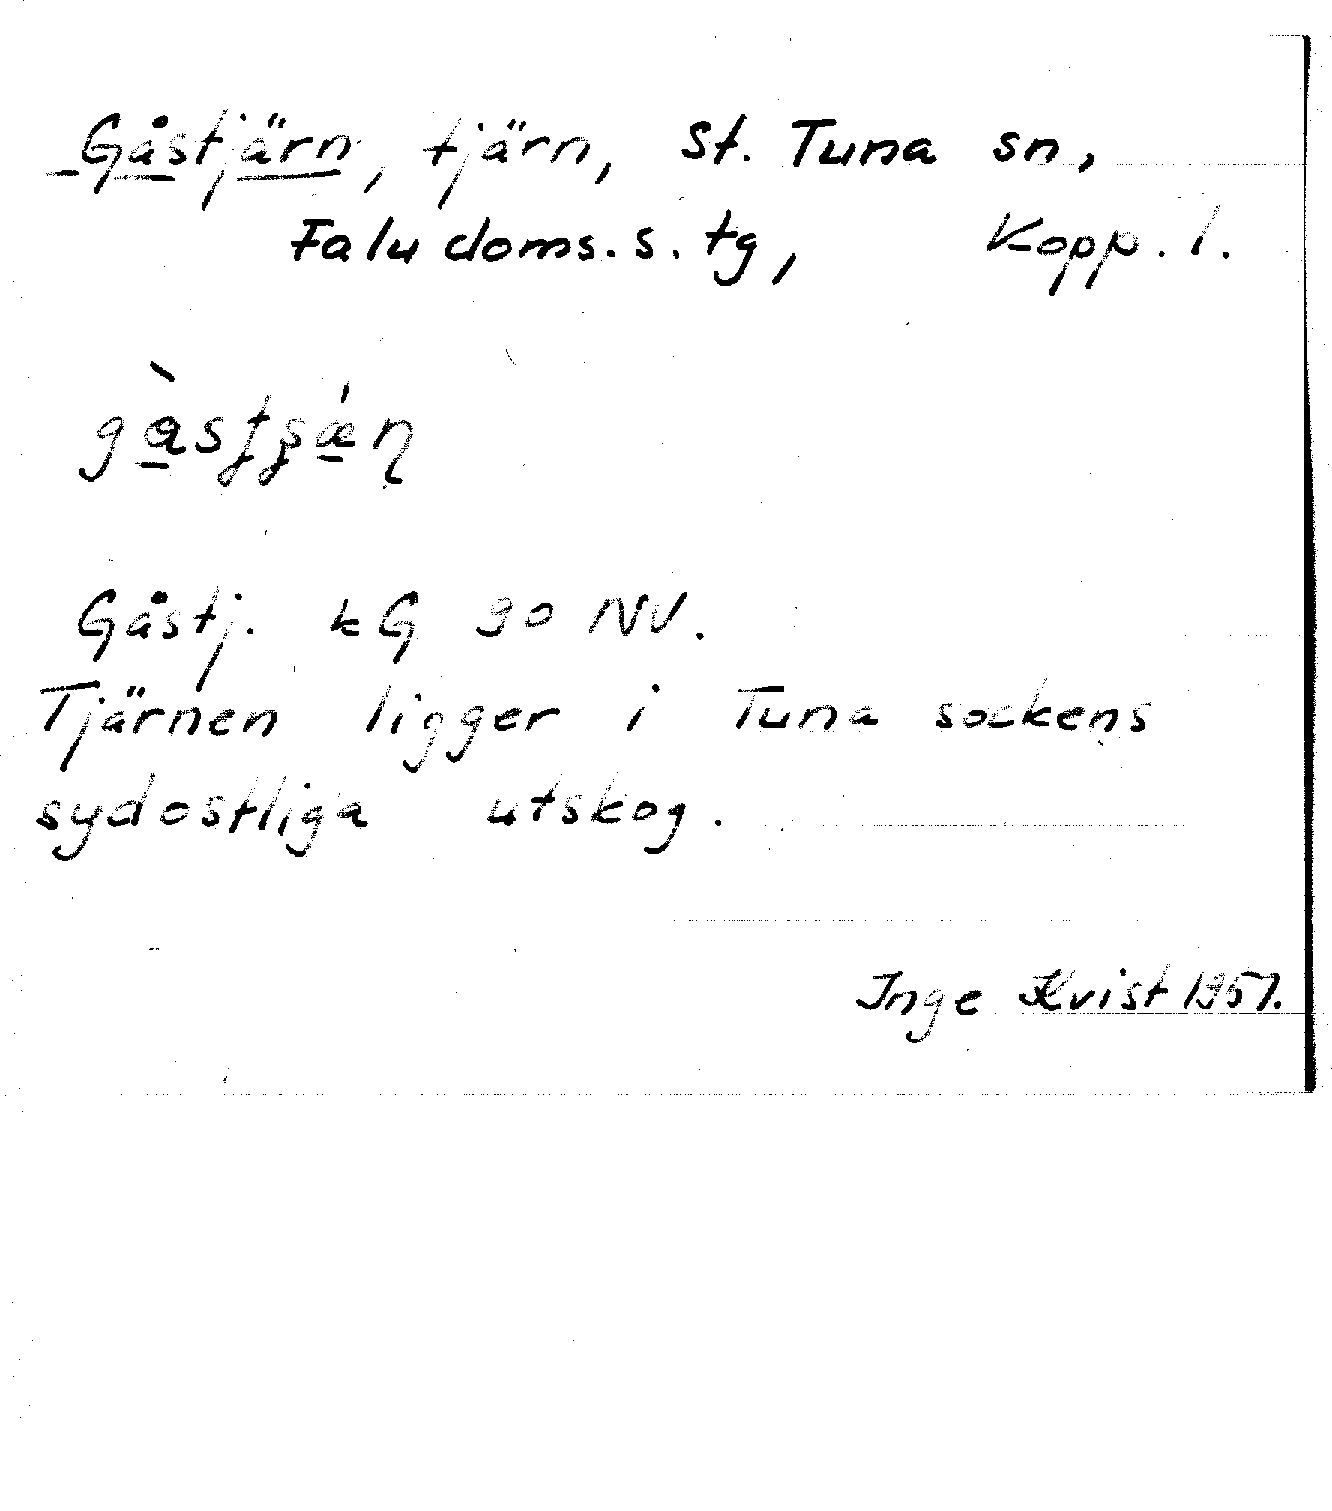 Gåstjärn, tjärn, St. Tuna sn,
Falu doms. s. tg, Kopp. l.
Gåstj. kG 90 NV.
Tjärnen ligger i Tuna sockens
sydostliga utskog.
Inge Kvist 1957.